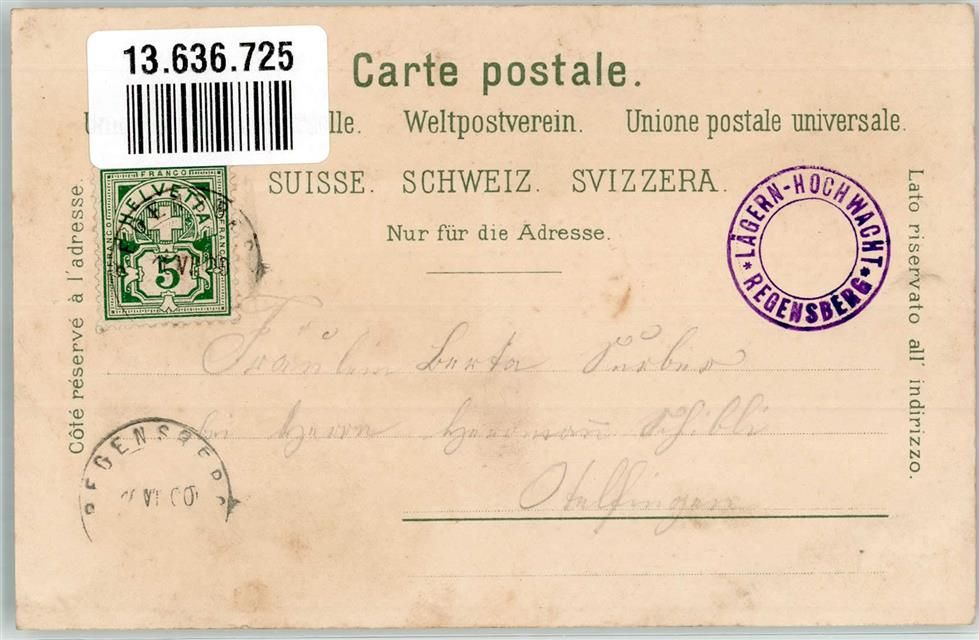 13.636.725
Carte postale.
lle. Weltpostverein. Unione postale universale.
SUISSE. SCHWEIZ. SVIZZERA.
Nur für die Adresse.
Côté réservé à l'adresse.
Lato riservato all' indirizzo.
FRANCO
FRANCO
FRANCO
HELVETIA
5
LÄGERN-HOCHWACHT
* REGENSBERG *
Fräulein Berta Surber
bei Herrn Hermann Schibli
Otelfingen
REGENSBERG
VI 00